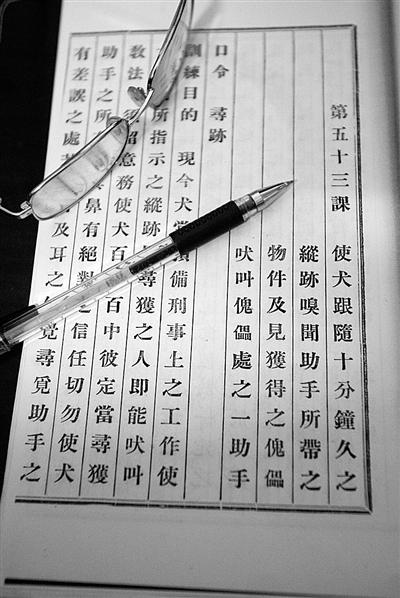 第五十三課 使犬跟隨十分鐘久之
縱跡嗅聞助手所帶之
物件及見獲得之傀儡
吠叫傀儡處之一助手
口令 尋跡
訓練目的 現今犬備刑事上之工作使
所指示之縱跡尋獲之人即能吠叫
教法意務使犬百百中彼定當尋獲
助手之所鼻有絕對之信任切勿使犬
有差誤之處及耳之覺尋覓助手之